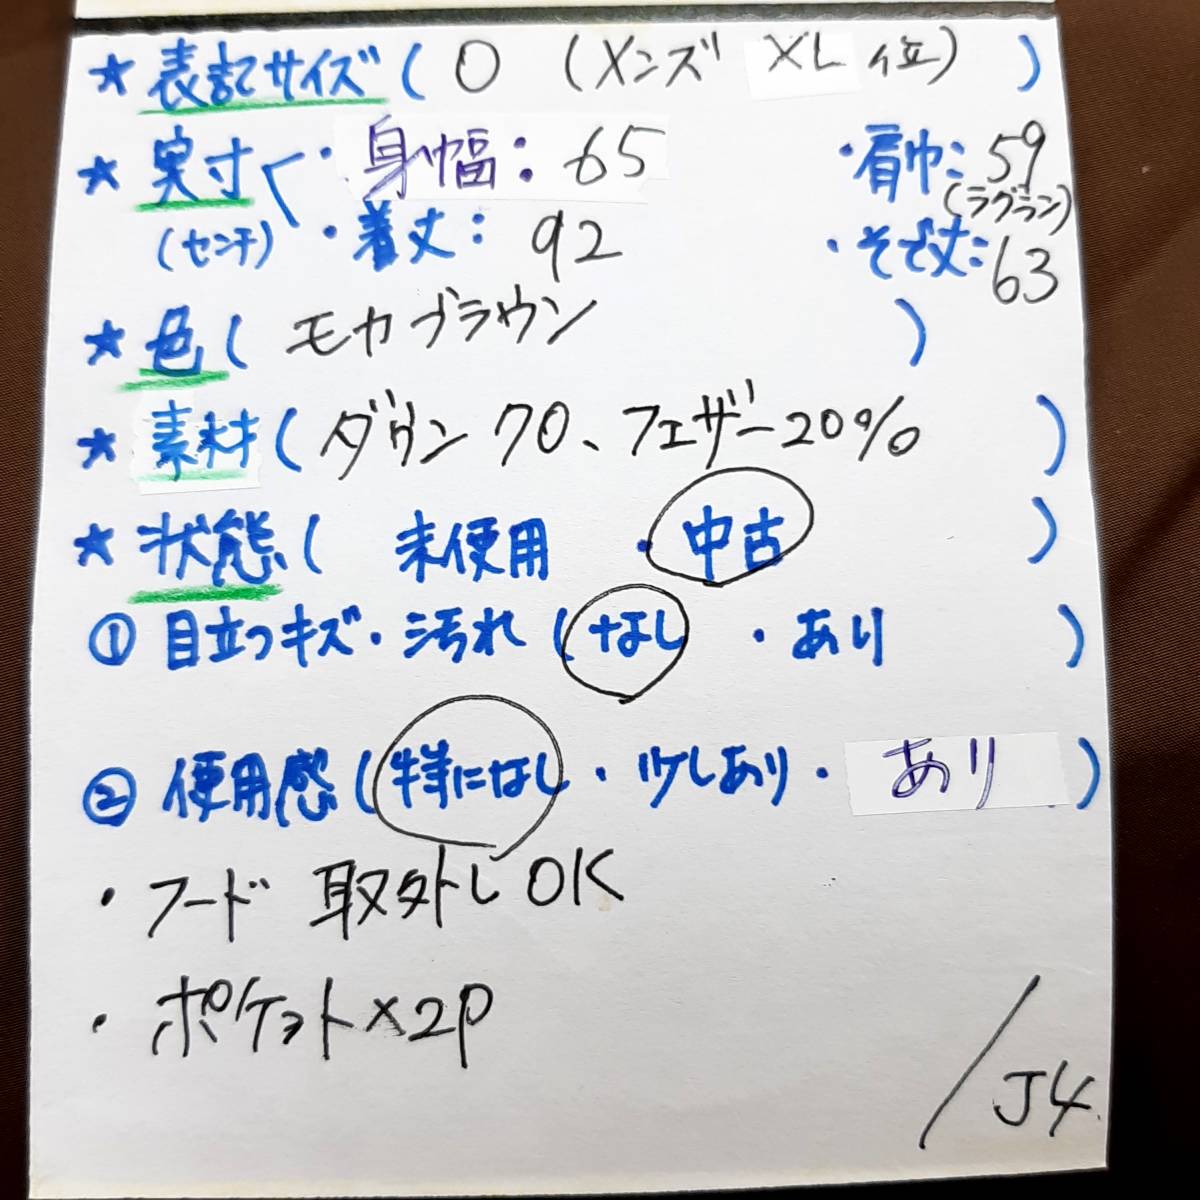 ★ 表記サイズ ( 0 (メンズ XL 位) )
★ 実寸 ・身幅: 65 ・肩巾: 59
(センチ) ・着丈: 92 (ラグラン)
・そで丈: 63
★ 色 ( モカブラウン )
★ 素材 ( ダウン 70、フェザー20% )
★ 状態 ( 未使用 ・ 中古 )
① 目立つキズ・汚れ ( なし ・ あり )
② 使用感 ( 特になし ・ 少しあり ・ あり )
・ フード 取外し OK
・ ポケット×2P
/J4